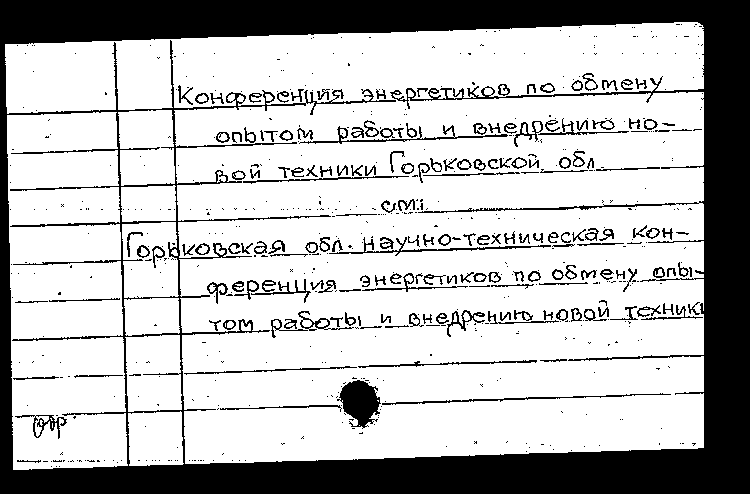 Конференция энергетиков по обмену
опытом работы и внедрению но-
вой техники Горьковской обл.
см.
Горьковская обл. научно-техническая кон-
ференция энергетиков по обмену опы-
том работы и внедрению новой техники